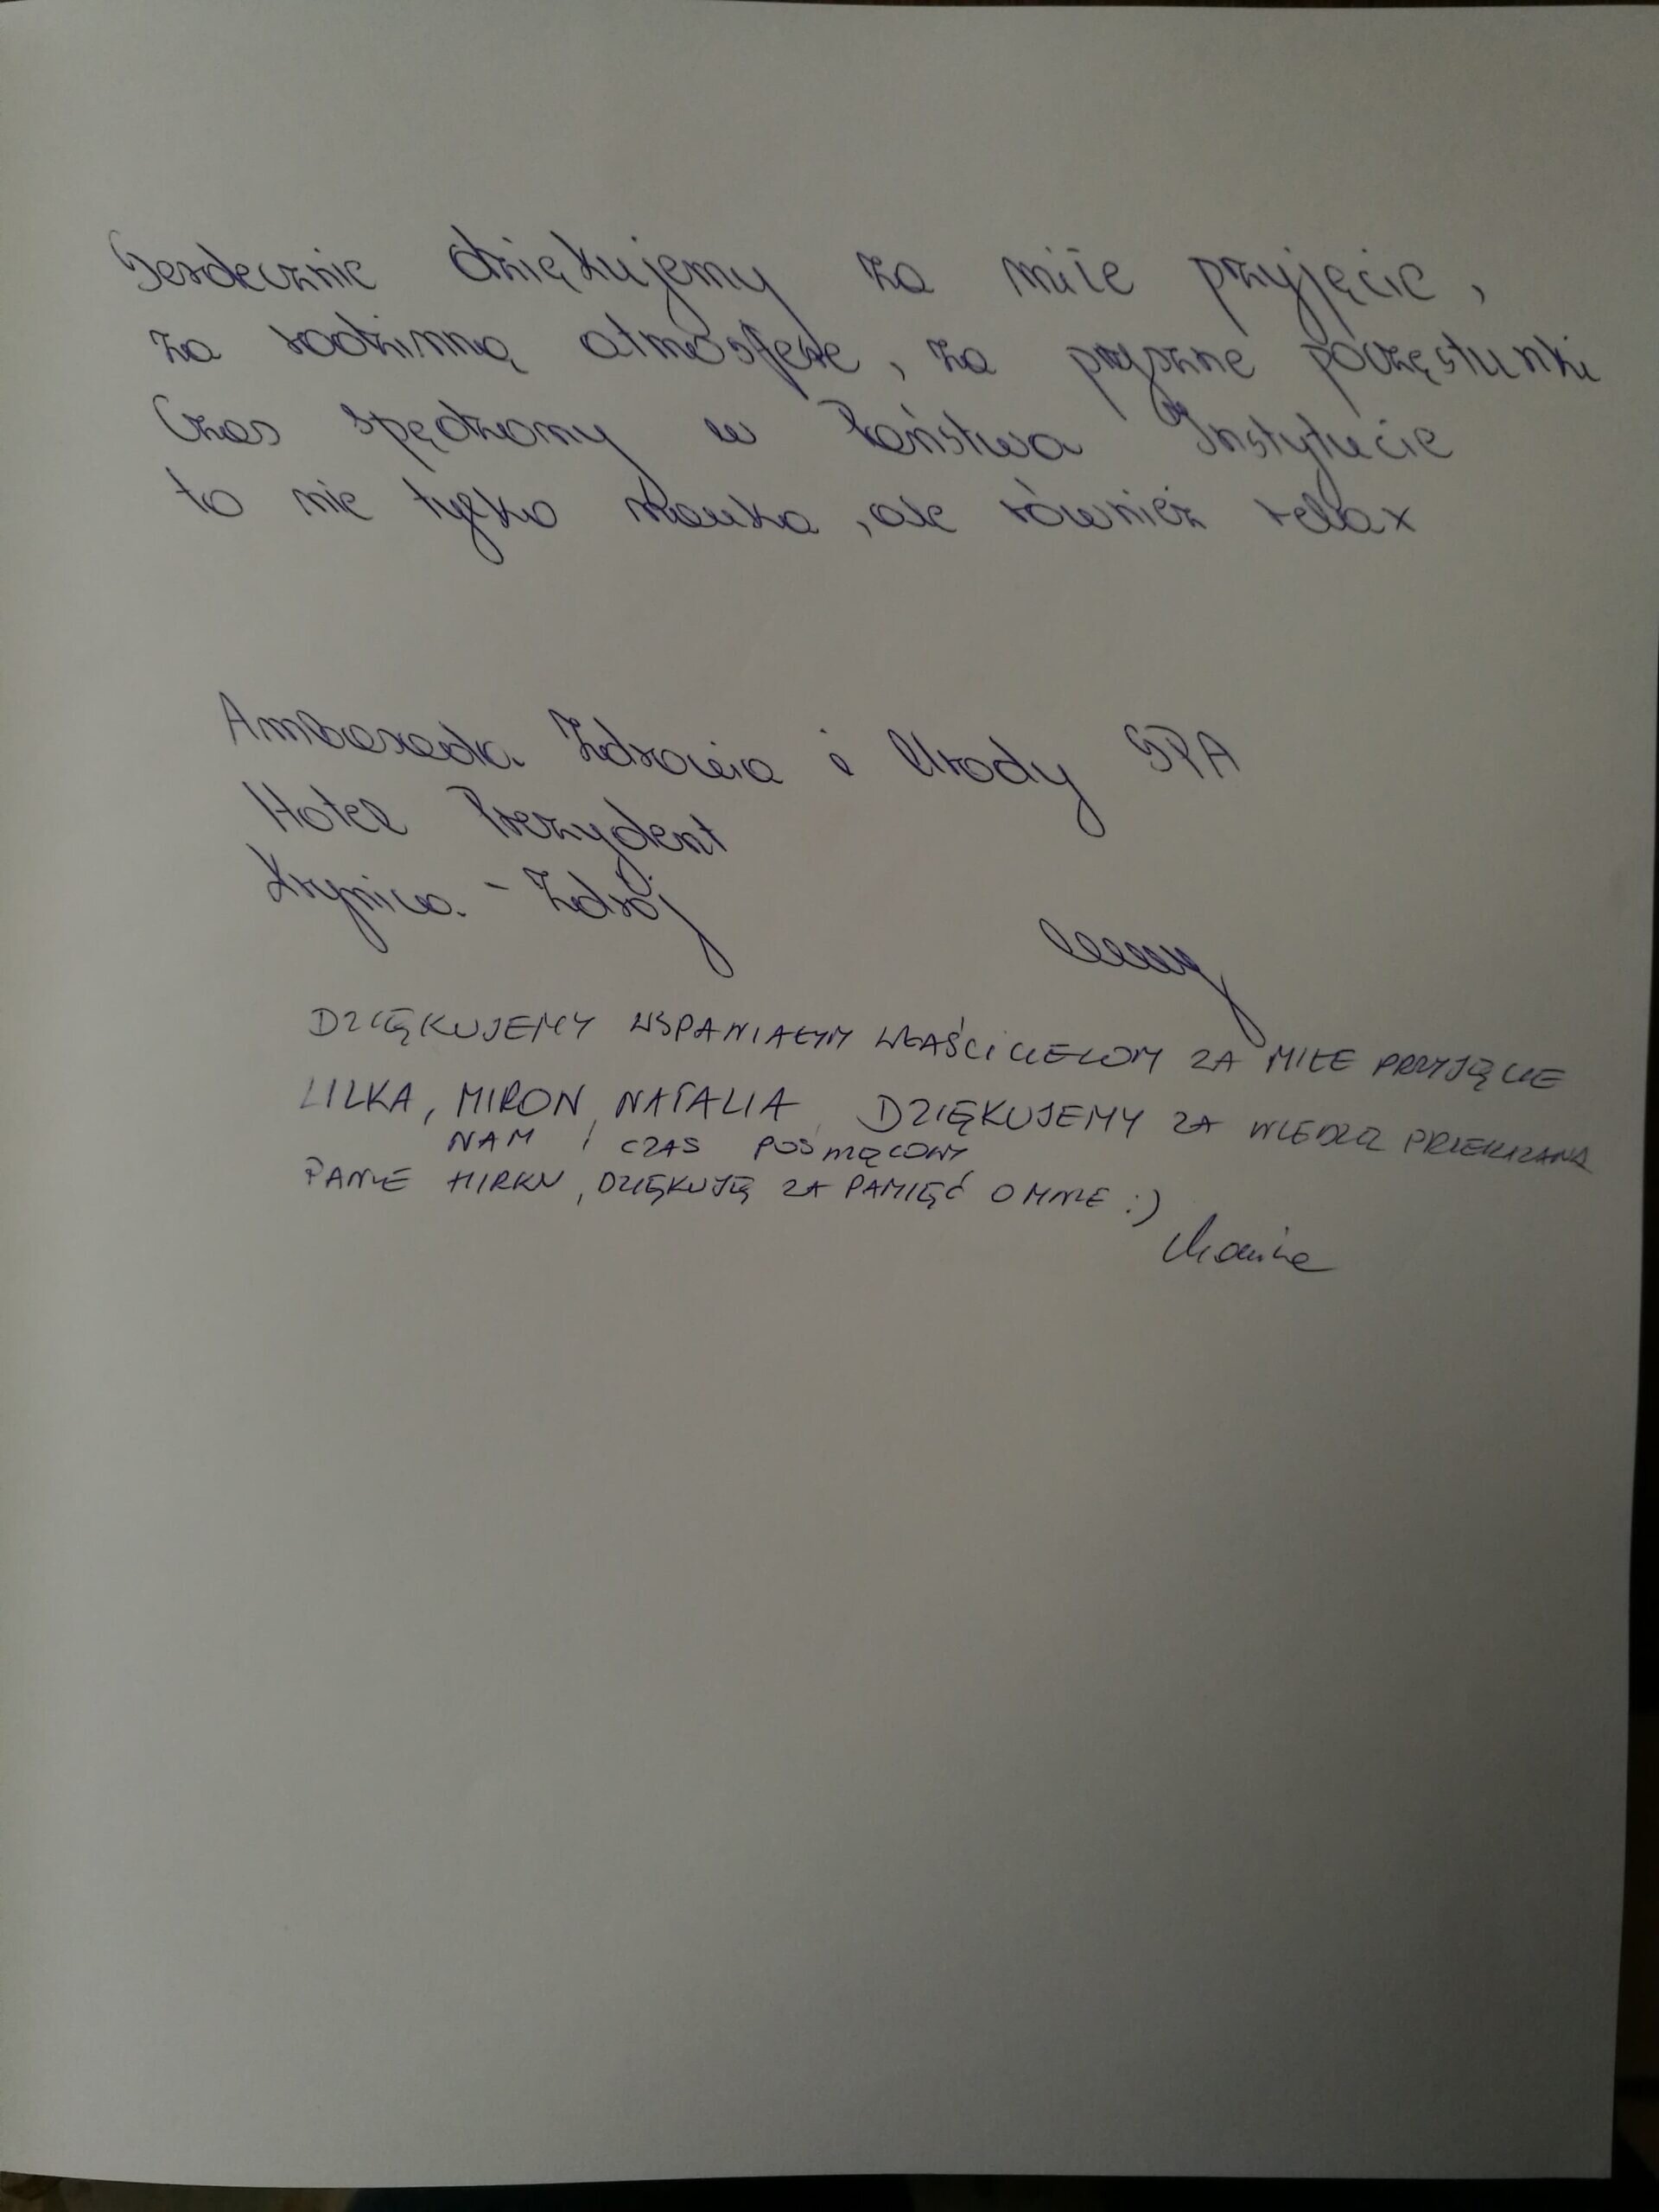 Serdecznie dziękujemy za miłe przyjęcie,
za rodzinną atmosferę, za pyszne poczęstunki
Czas spędzony w Państwa Instytucie
to nie tylko nauka, ale również relax
Ambasada Zdrowia i Urody SPA
Hotel Prezydent
Krynica - Zdrój
DZIĘKUJEMY WSPANIAŁYM WŁAŚCICIELOM ZA MIŁE PRZYJĘCIE
LILKA, MIRON, NATALIA DZIĘKUJEMY ZA WIEDZĘ PRZEKAZANĄ
NAM I CZAS POŚWIĘCONY
PANIE MIRKU, DZIĘKUJĘ ZA PAMIĘĆ O MNIE :)